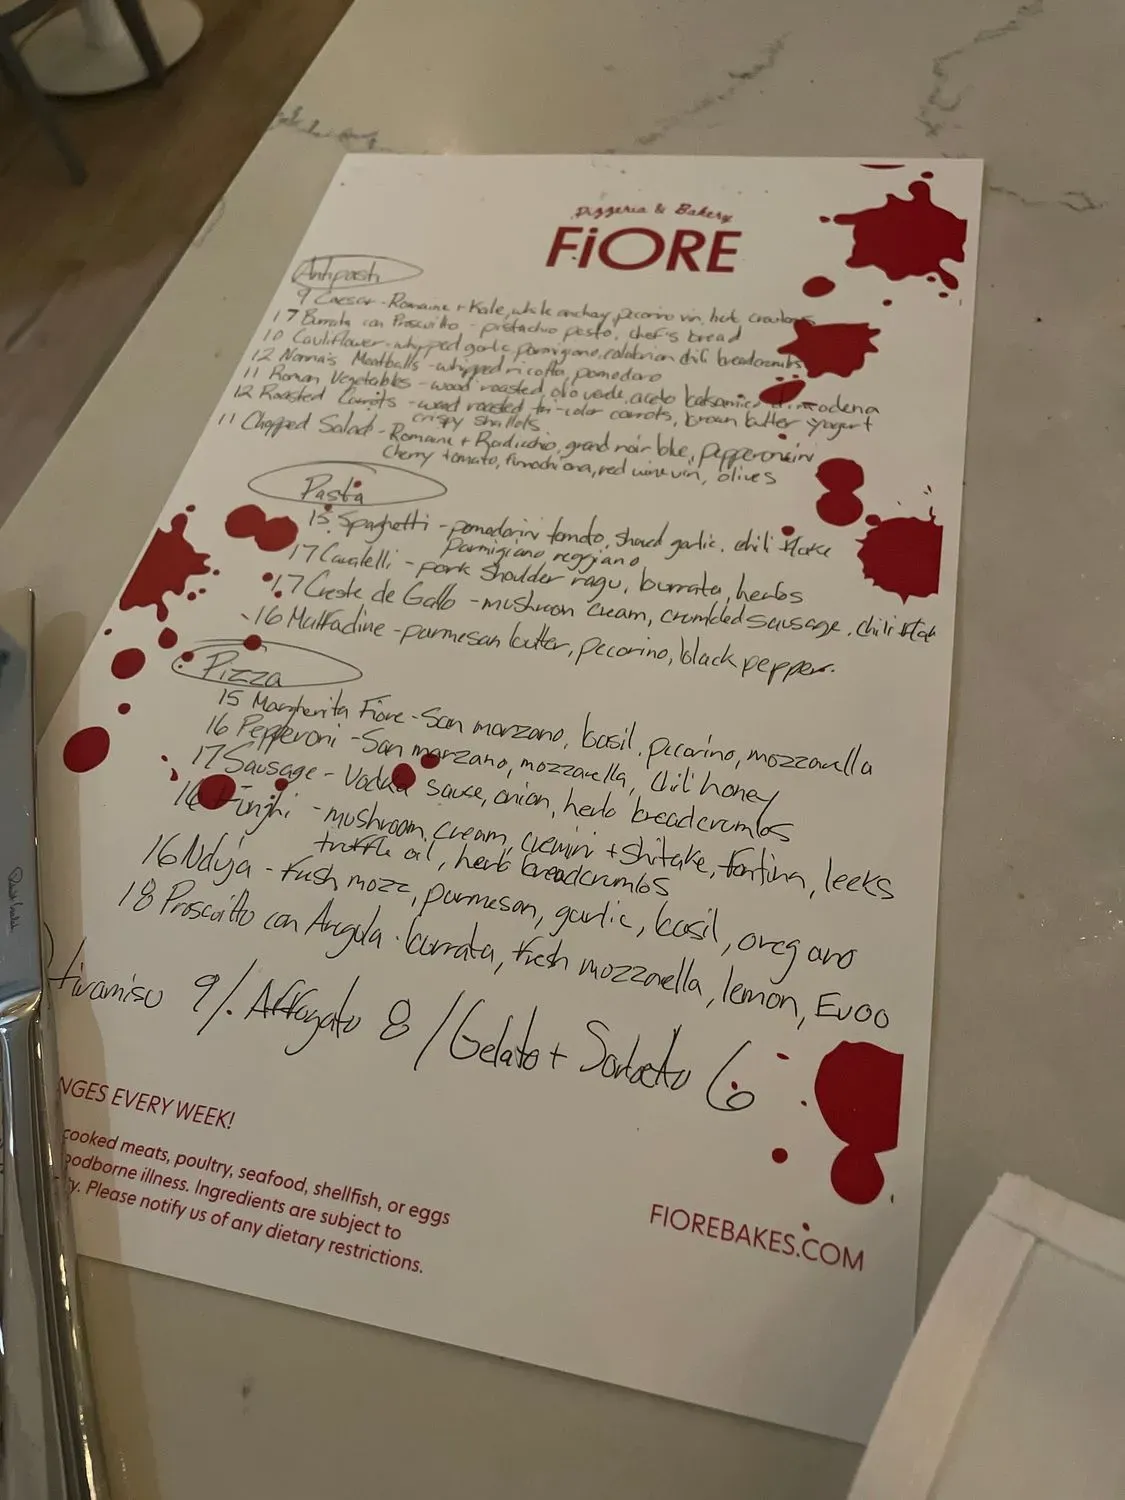 Pizzeria & Bakery
FiORE
Antipasti
9 Caesar - Romaine + Kale, white anchovy, pecorino vin, hot croutons
17 Burrata con Proscuitto - pistachio pesto, chef's bread
10 Cauliflower - whipped garlic, parmigiano, calabrian chili breadcrumbs
12 Nonna's Meatballs - whipped ricotta, pomodoro
11 Roman Vegetables - wood roasted, olio verde, aceto balsamico di modena
12 Roasted Carrots - wood roasted tri-color carrots, brown butter yogurt
crispy shallots
11 Chopped Salad - Romaine + Radicchio, grand noir blue, pepperoncini
Cherry tomato, finocchiona, red wine vin, olives
Pasta
15 Spaghetti - pomodorini tomato, shaved garlic, chili flake
Parmigiano reggiano
17 Cavatelli - pork shoulder ragu, burrata, herbs
17 Creste de Gallo - mushroom cream, crumbled sausage, chili flake
16 Malfadine - parmesan butter, pecorino, black pepper
Pizza
15 Margherita Fiore - San marzano, basil, pecorino, mozzarella
16 Pepperoni - San marzano, mozzarella, chili honey
17 Sausage - Vodka sauce, onion, herb breadcrumbs
16 Funghi - mushroom cream, cremini + shitake, fontina, leeks
truffle oil, herb breadcrumbs
16 Nduja - fresh mozz, parmesan, garlic, basil, oregano
18 Proscuitto con Arugula - burrata, fresh mozzarella, lemon, Evoo
tiramisu 9 / Affogato 8 / Gelato + Sorbetto 6
NGES EVERY WEEK!
cooked meats, poultry, seafood, shellfish, or eggs
oodborne illness. Ingredients are subject to
ty. Please notify us of any dietary restrictions.
FIOREBAKES.COM